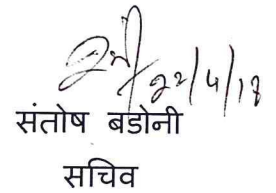 22/4/18
संतोष बडोनी
सचिव